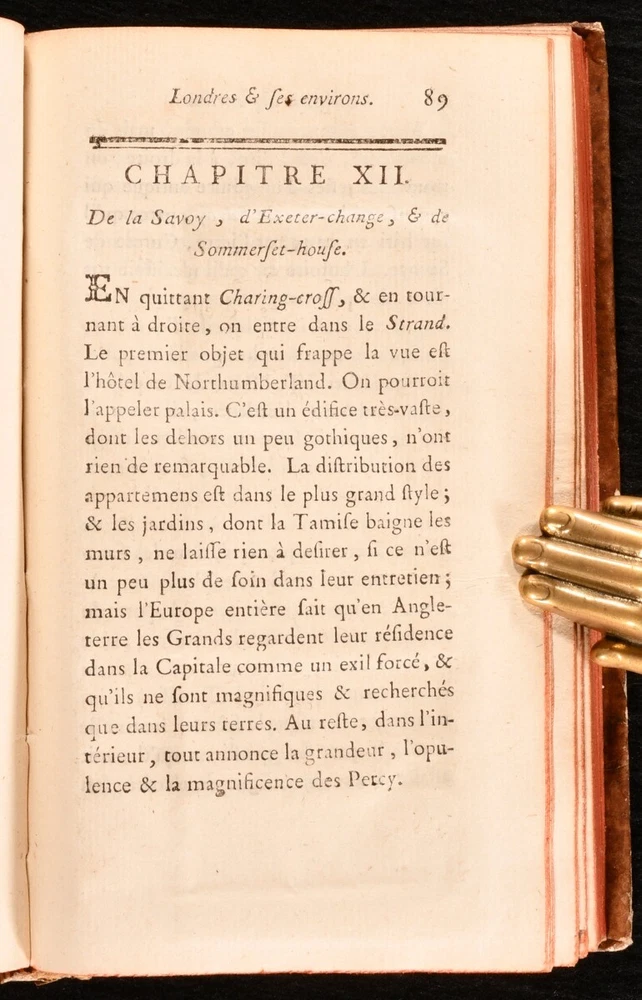 Londres & ſes environs. 89
CHAPITRE XII.
De la Savoy, d'Exeter-change, & de
Sommerſet-houſe.
EN quittant Charing-croſſ, & en tour-
nant à droite, on entre dans le Strand.
Le premier objet qui frappe la vue eſt
l'hôtel de Northumberland. On pourroit
l'appeler palais. C'eſt un édifice très-vaſte,
dont les dehors un peu gothiques, n'ont
rien de remarquable. La diſtribution des
appartemens eſt dans le plus grand ſtyle;
& les jardins, dont la Tamiſe baigne les
murs, ne laiſſe rien à deſirer, ſi ce n'eſt
un peu plus de ſoin dans leur entretien;
mais l'Europe entière ſait qu'en Angle-
terre les Grands regardent leur réſidence
dans la Capitale comme un exil forcé, &
qu'ils ne ſont magnifiques & recherchés
que dans leurs terres. Au reſte, dans l'in-
térieur, tout annonce la grandeur, l'opu-
lence & la magnificence des Percy.